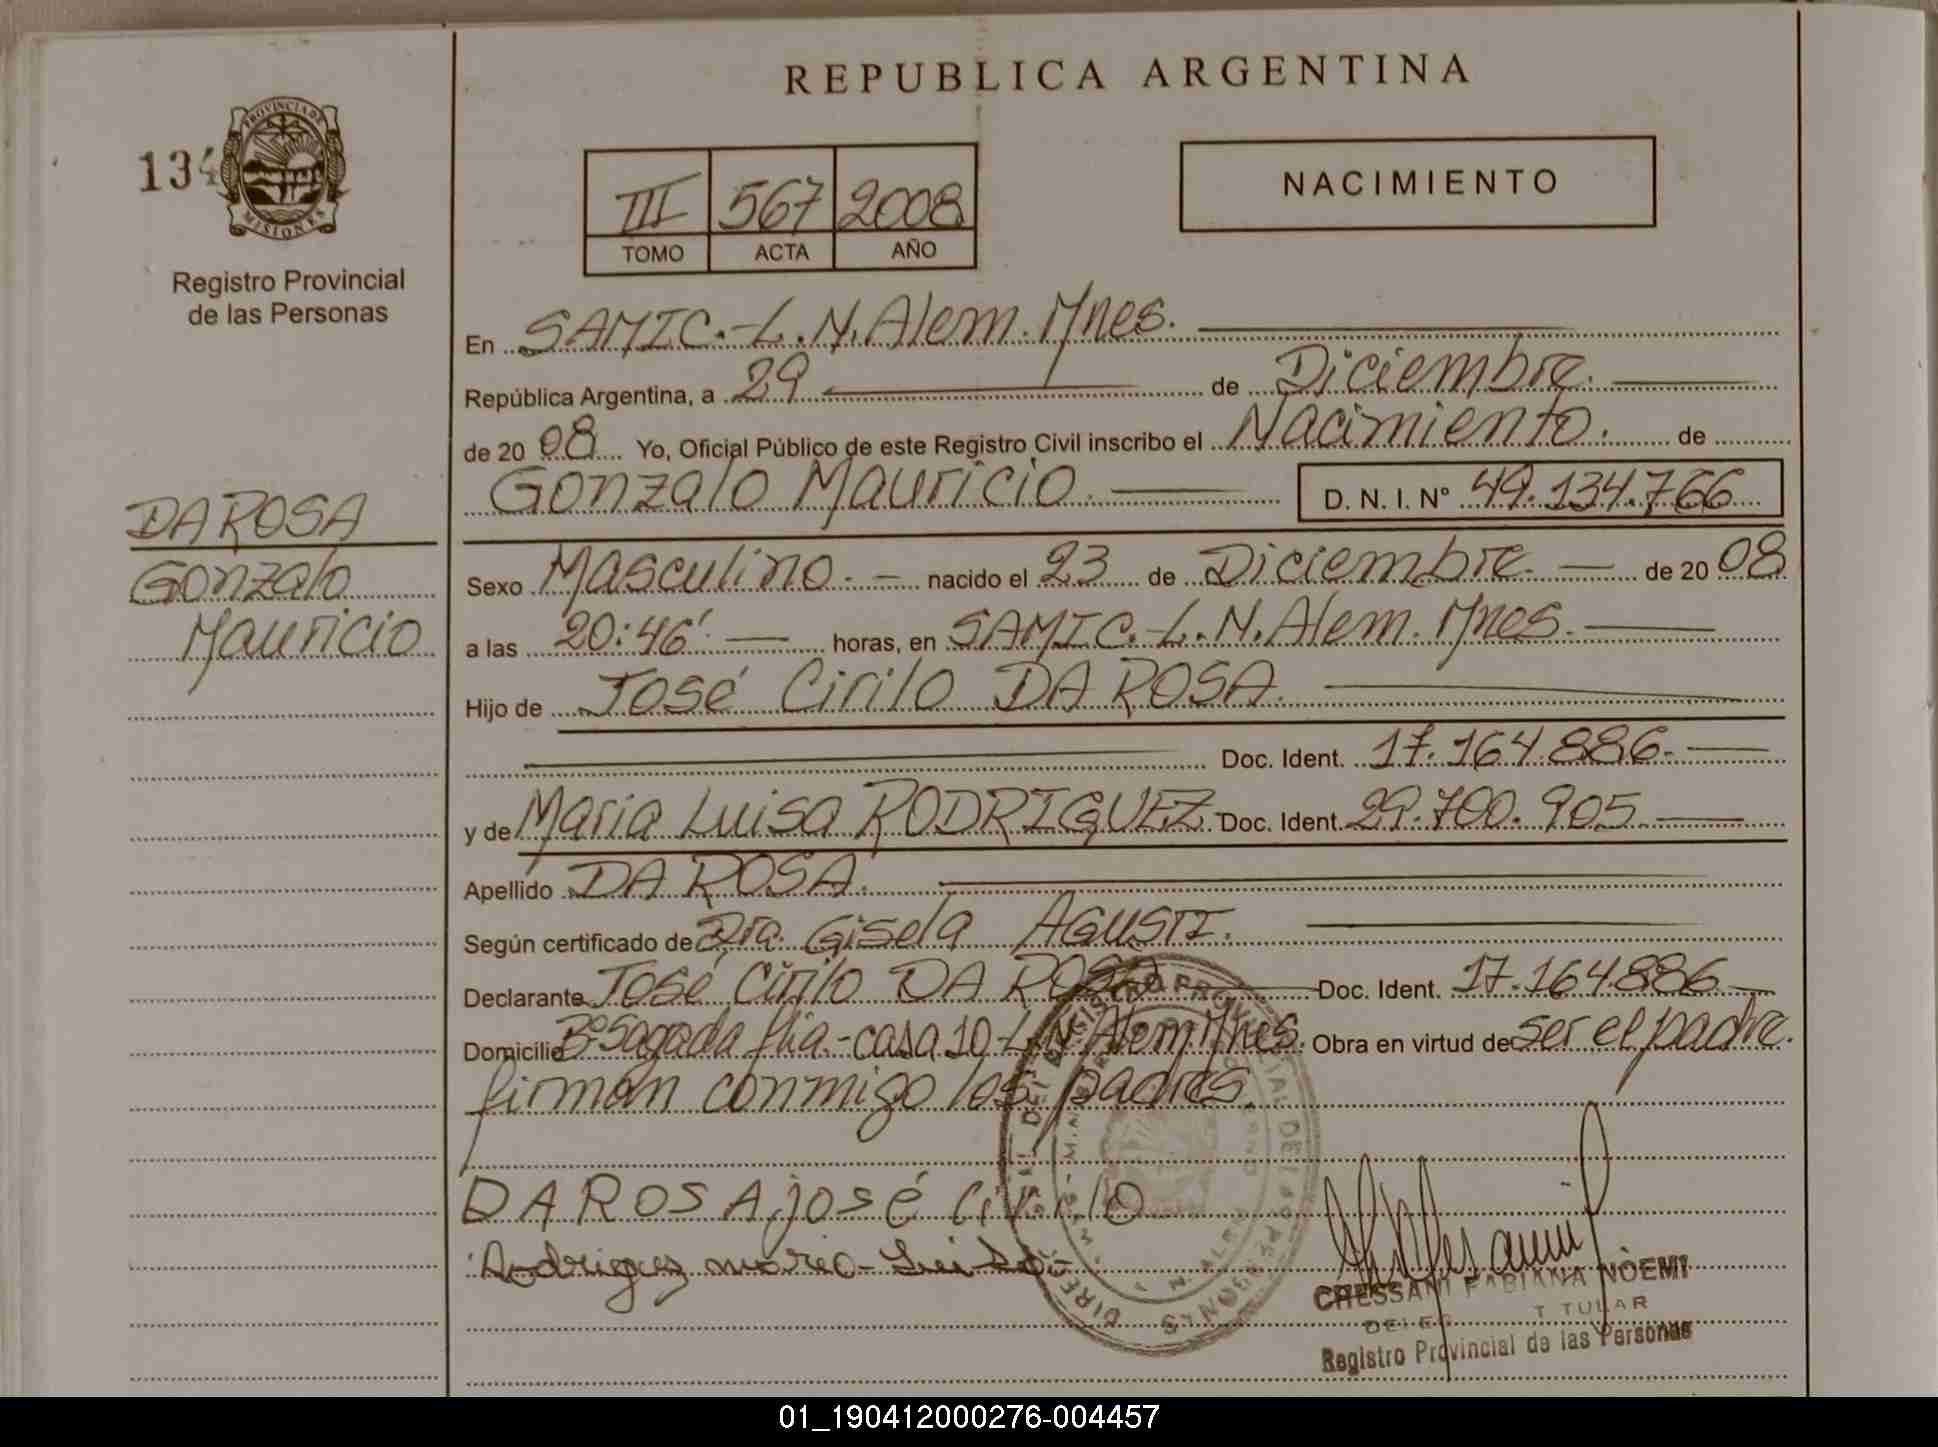 REPUBLICA ARGENTINA
134
PROVINCIA DE
MISIONES
Registro Provincial
de las Personas
III 567 2008
TOMO ACTA AÑO
NACIMIENTO
En SAMIC.-L.N.Alem. Mnes.
República Argentina, a 29 de Diciembre.
de 20 08 Yo, Oficial Público de este Registro Civil inscribo el Nacimiento. de
Gonzalo Mauricio. D. N. I. Nº 49.134.766
DA ROSA
Gonzalo
Mauricio
Sexo Masculino. nacido el 23 de Diciembre. de 20 08
a las 20:46'. horas, en SAMIC.-L.N.Alem. Mnes.
Hijo de José Cirilo DA ROSA.
Doc. Ident. 17.164.886.
y de Maria Luisa RODRIGUEZ. Doc. Ident. 29.700.905
Apellido DA ROSA.
Según certificado de Dra. Gisela AGUSTI.
Declarante José Cirilo DA ROSA Doc. Ident. 17.164.886
Domicilio Bº Sagada flia.-casa 10-L.N.Alem. Mnes. Obra en virtud de ser el padre.
firman conmigo los padres.
DA ROSA josé Cirilo
Rodriguez maria Luisa
CHESSANI FABIANA NOEMI
TITULAR
Registro Provincial de las Personas
01_190412000276-004457